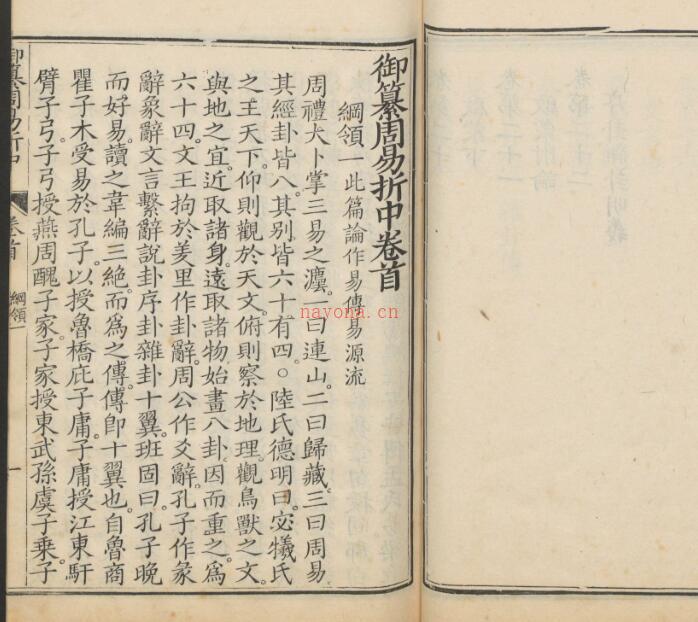 御纂周易折中卷首
綱領一此篇論作易傳易源流
周禮大卜掌三易之灋。一曰連山。二曰歸藏。三曰周易
其經卦皆八。其別皆六十有四。○陸氏德明曰。宓犧氏
之王天下。仰則觀於天文。俯則察於地理。觀鳥獸之文
與地之宜。近取諸身。遠取諸物。始畫八卦。因而重之。爲
六十四。文王拘於羑里作卦辭。周公作爻辭。孔子作彖
辭象辭文言繫辭說卦序卦雜卦十翼。班固曰。孔子晚
而好易。讀之韋編三絕。而爲之傳。傳卽十翼也。自魯商
瞿子木受易於孔子。以授魯橋庇子庸。子庸授江東馯
臂子弓。子弓授燕周醜子家。子家授東武孫虞子乘。子
御纂周易折中
卷首
綱領一
一
nayona.cn